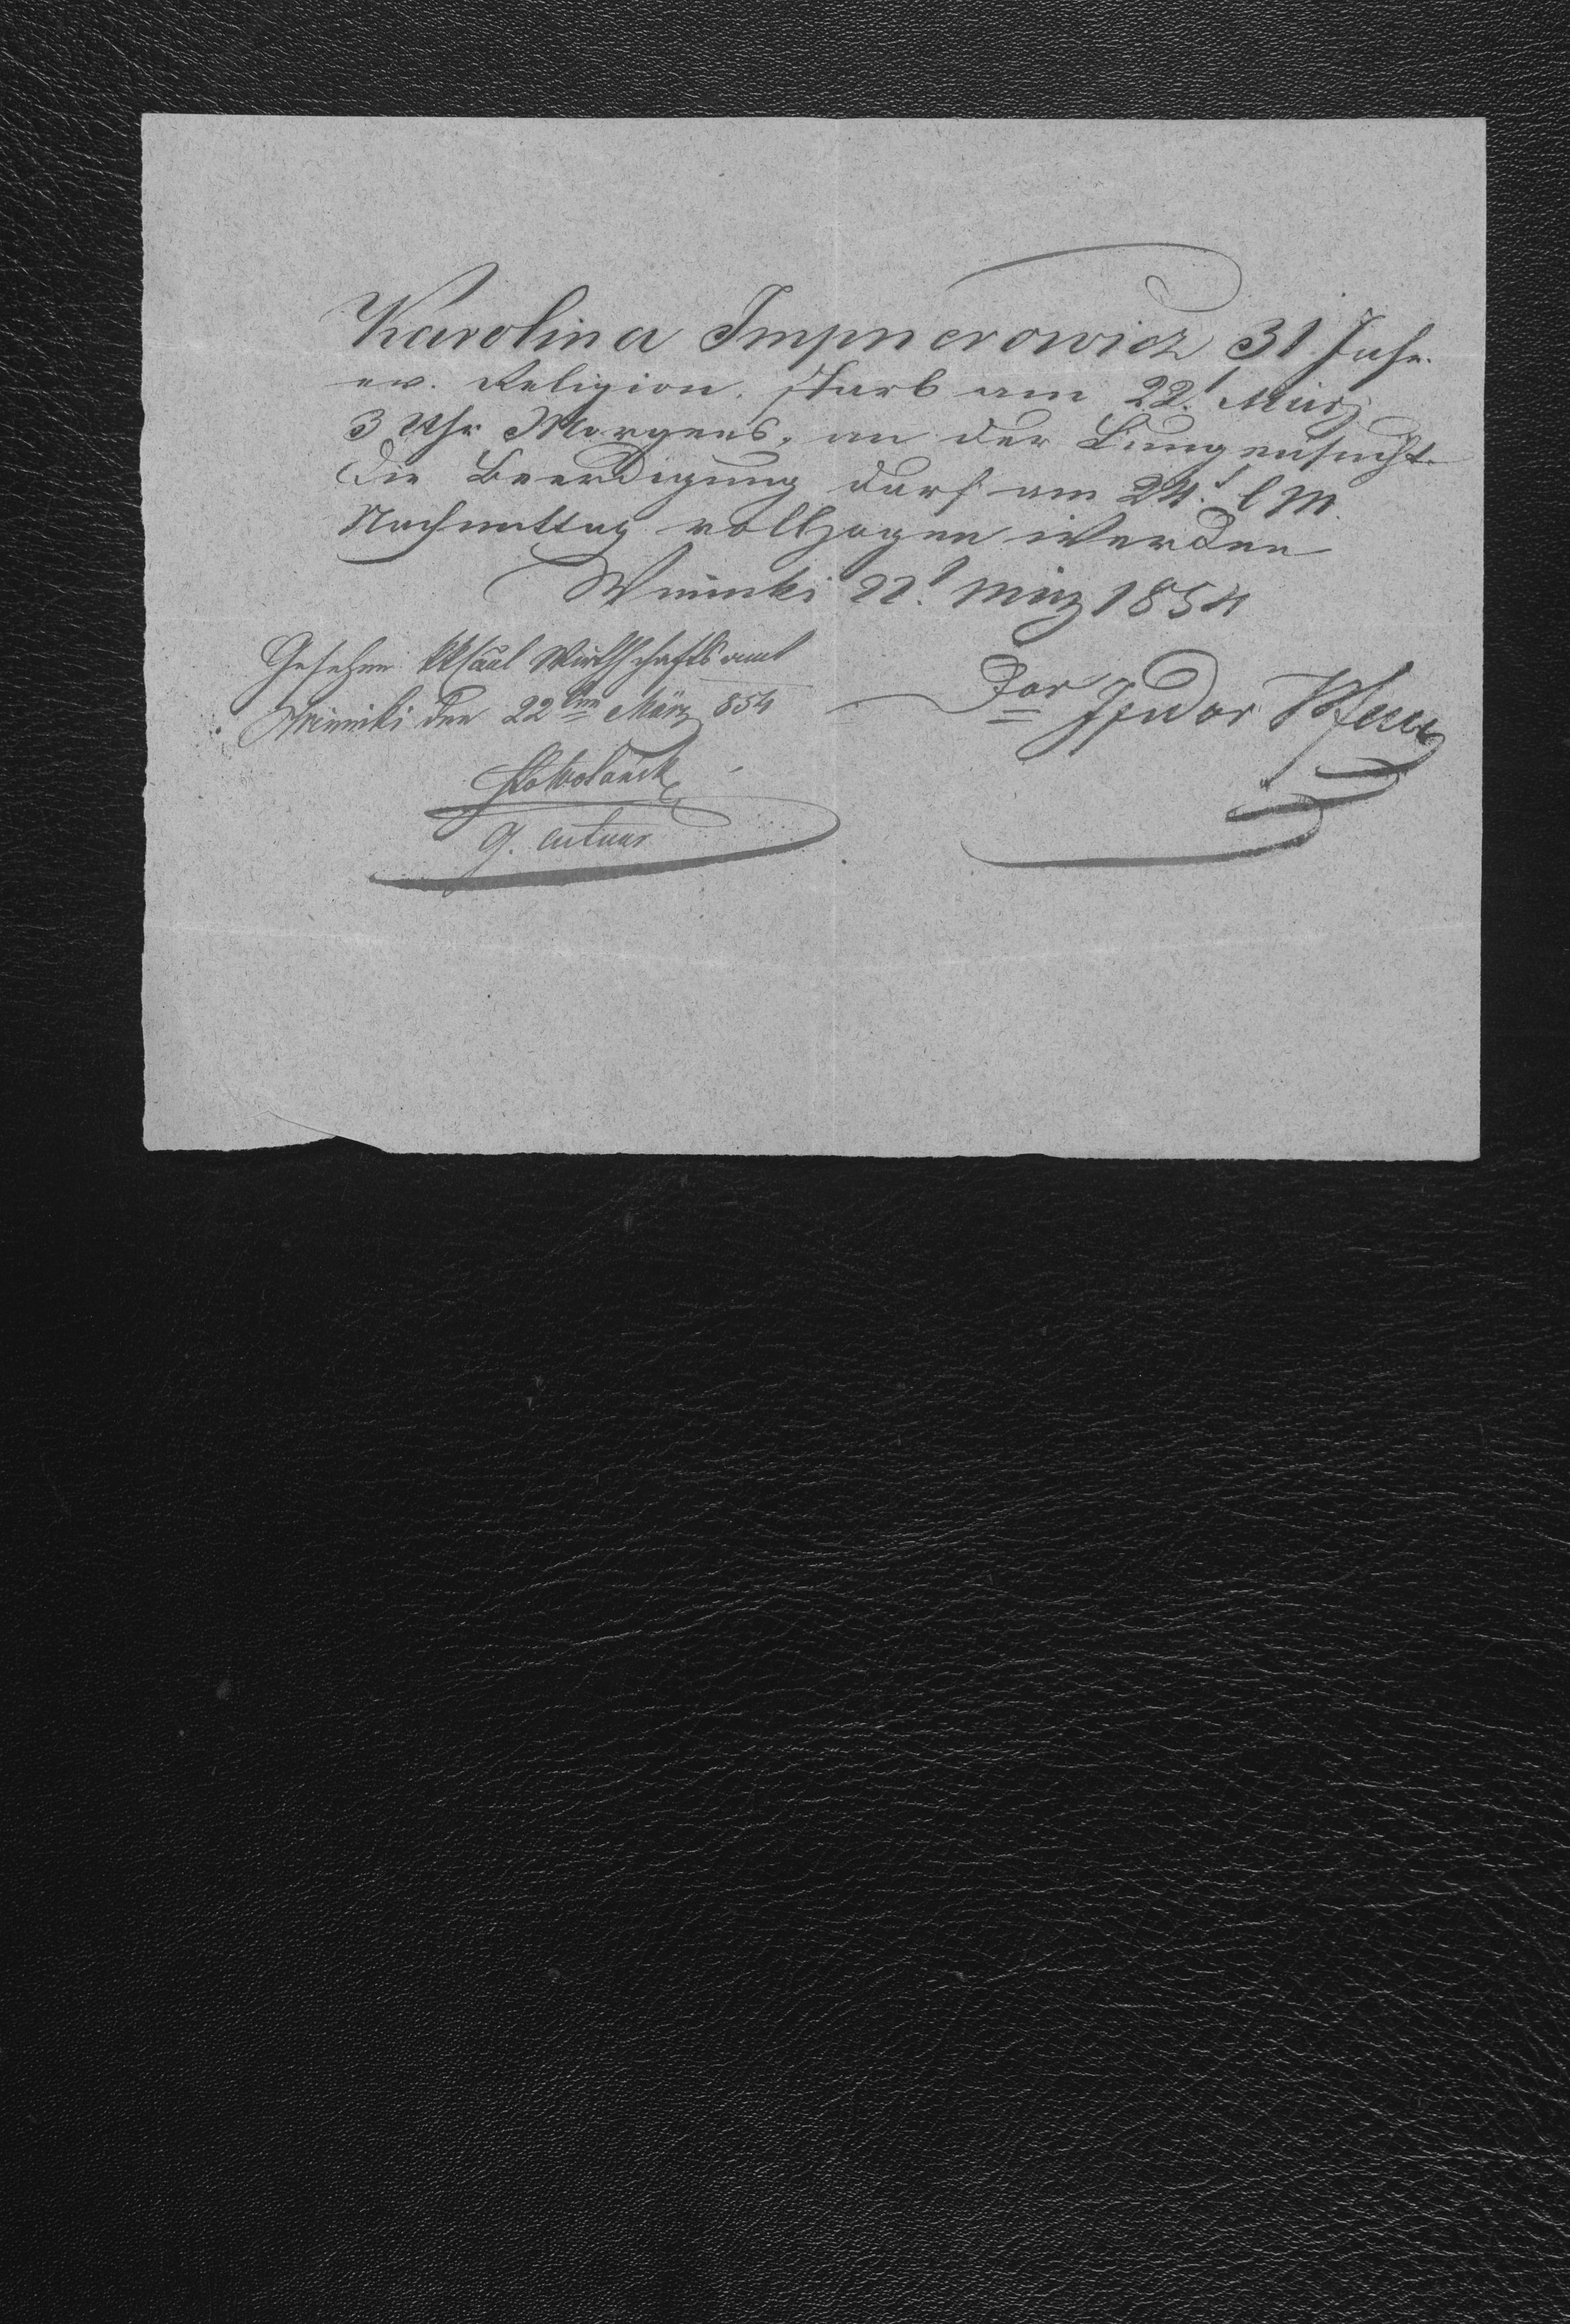 Karolina Impnerowicz 31 Jahr
ev. Religion, starb am 22t März
3 Uhr Morgens, an der Lungensucht.
Die Beerdigung darf am 24t l M.
Nachmittag vollzogen werden
Winniki 22t März 1854
Gesehen Wirthschaftsamt
Winniki den 22ten März 854
Dor Isidor